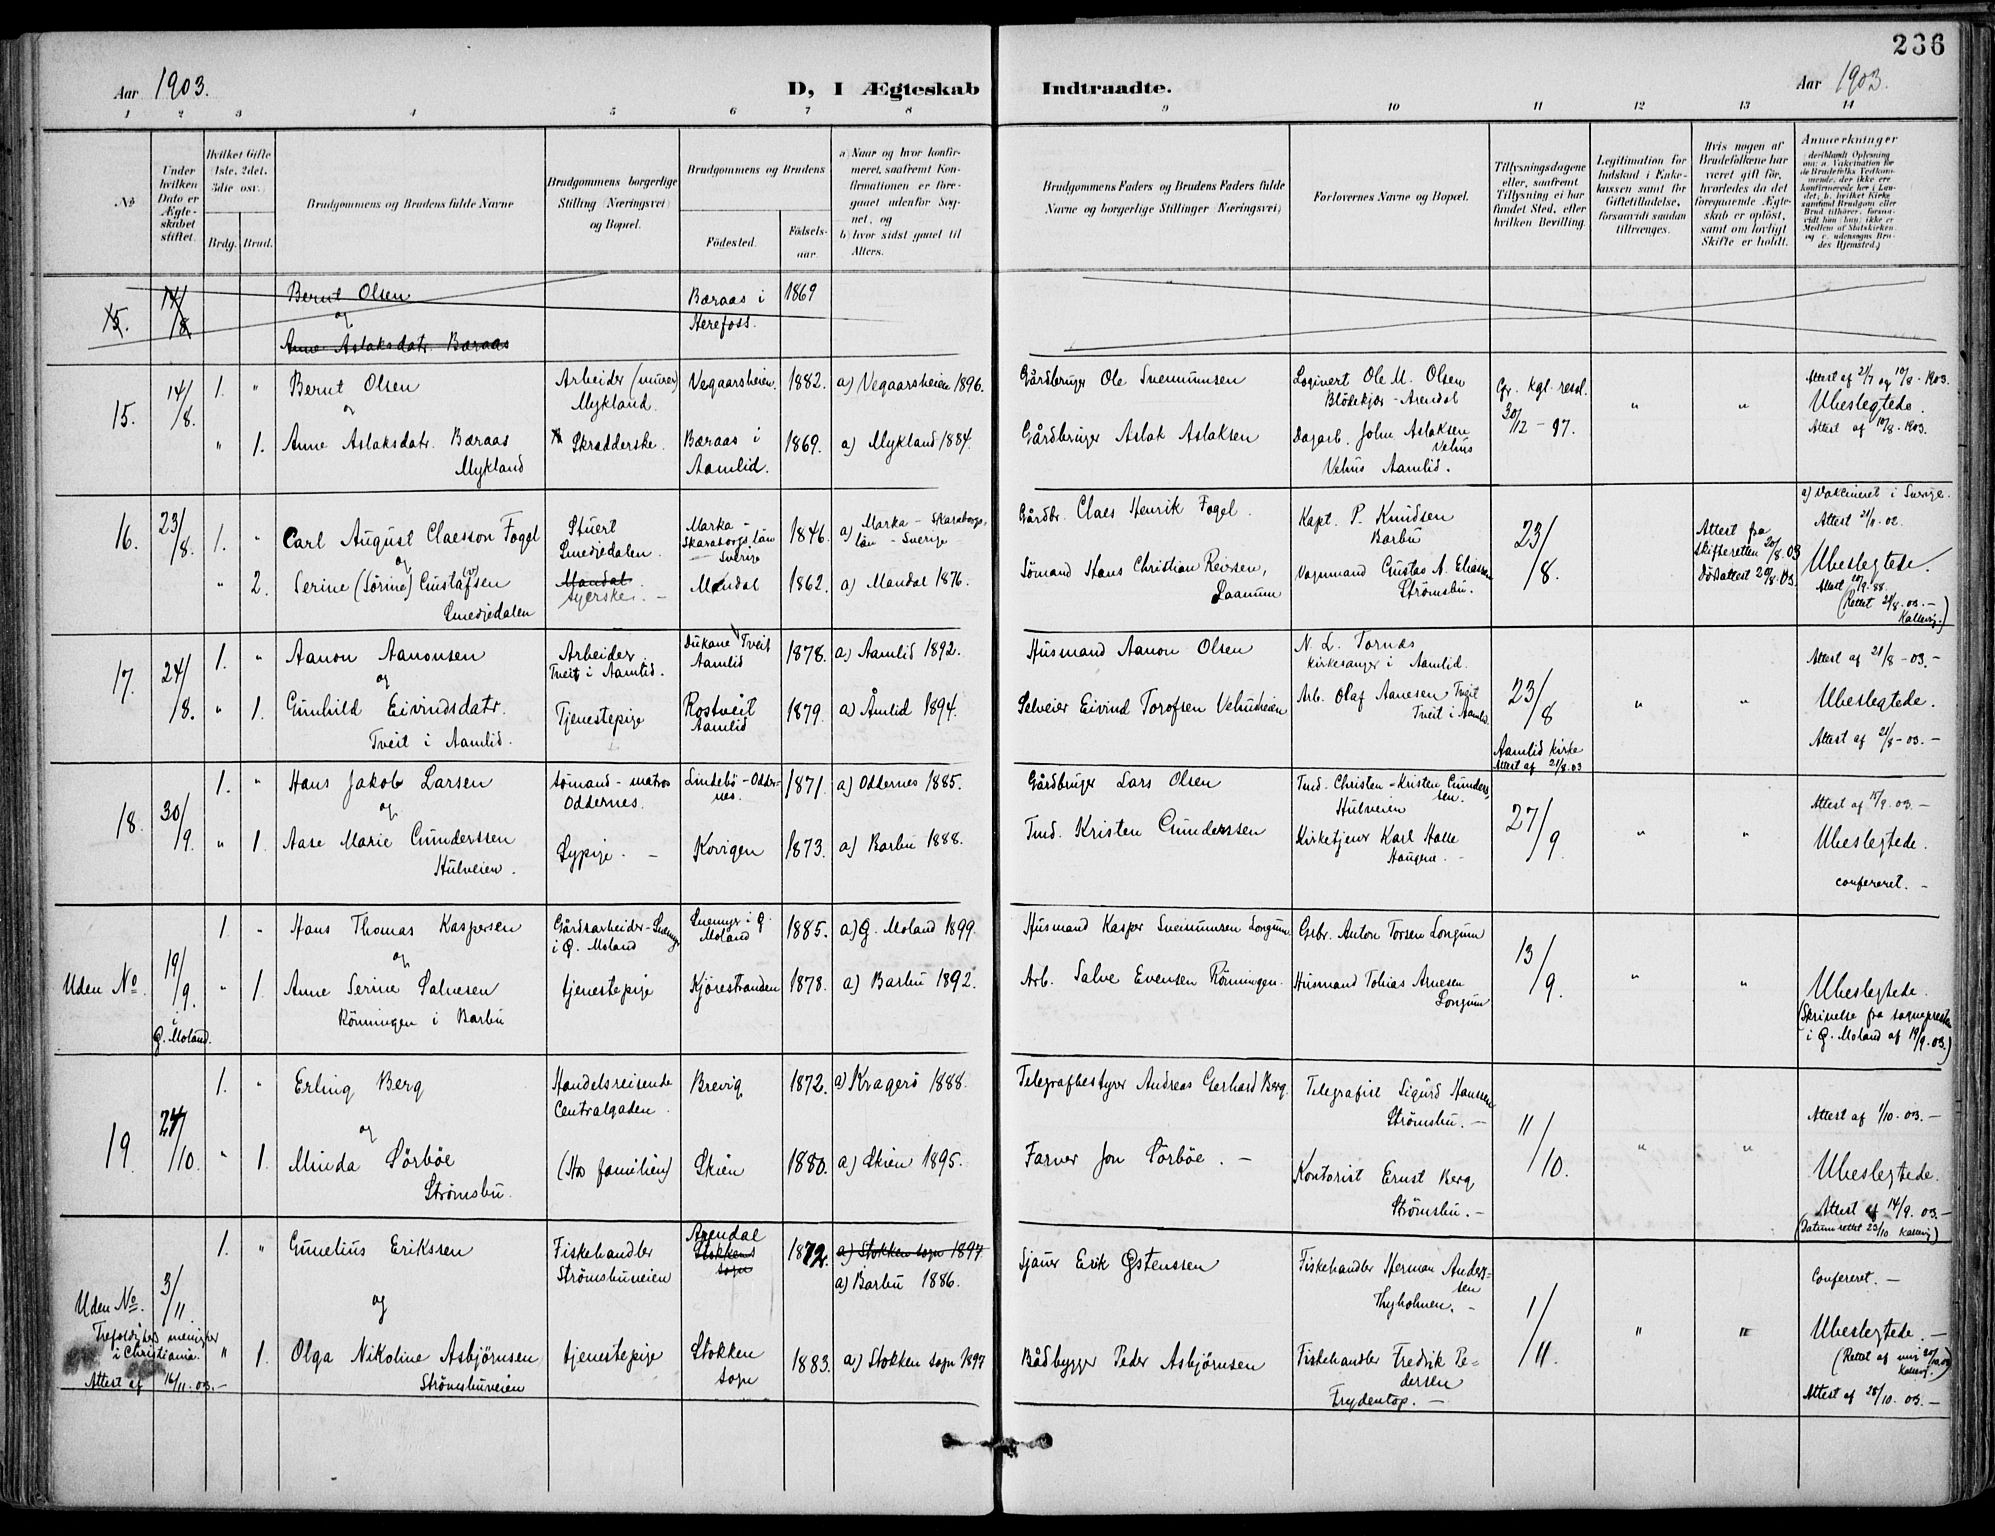 236
Aar 1903.
D, I Ægteskab Indtraadte.
Aar 1903.
1 2 3 4 5 6 7 8 9 10 11 12 13 14
No
Under hvilken Dato er Ægteskabet stiftet.
Hvilket Gifte (1ste, 2det, 3die osv.)
Brdg. Brud.
Brudgommens og Brudens fulde Navne
Brudgommens borgerlige Stilling (Næringsvei) og Bopæl.
Brudgommens og Brudens
Fødested. Fødselsaar.
a) Naar og hvor konfirmeret, saafremt Konfirmationen er foregaaet udenfor Sognet, og
b) hvor sidst gaaet til Alters.
Brudgommens Faders og Brudens Faders fulde Navne og borgerlige Stillinger (Næringsvei)
Forlovernes Navne og Bopæl.
Tillysningsdagene eller, saafremt Tillysning ei har fundet Sted, efter hvilken Bevilling.
Legitimation for Indskud i Enkekassen samt for Giftetilladelse, forsaavidt saadan tiltrænges.
Hvis nogen af Brudefolkene har været gift før, hvorledes da det foregaaende Ægteskab er opløst, samt om lovligt Skifte er holdt.
Anmærkninger
15. 14/8 Bernt Olsen Bæraas i 1869
og Herefoss.
Anne Aslaksdatr. Bæraas
15. 14/8. 1. " Bernt Olsen Arbeider (murer) Vegaarsheien. 1882. a) Vegaarsheien 1896. Gårdbruger Ole Svenumsen Ole M. Olsen Gr. kgl. resol. Attest af 21/7 og 10/8 - 1903.
og Mykland. Blødekjær - Arendal 30/12 - 97. " " Ubeslegtede.
" 1. Anne Aslaksdatr. Bæraas Skrædderske. Bæraas i 1869. a) Mykland 1884. Gårdbruger Aslak Aslaksen Dagarb. John Aslaksen Velhus Attest af 10/8 - 1903.
Mykland Aamlid. Velhus Aamlid.
16. 23/8. 1. " Carl August Claesson Fogel Stuert Marka - 1846. a) Marka - Skaraborgs Gårdbr. Claes Henrik Fogel. Kapt. P. Knudsen 23/8. Attest fra a) Vakcineret i Sverige.
Smedjedalen. Skaraborgs län län - Sverige Barbu skifteretten 20/8. 03 Attest 21/11. 02.
og Sverige
" 2. Serine (Sørine) Gustafsen Mandal. Mandal 1862. a) Mandal 1876. Sømand Hans Christian Reiersen, Vognmand Gustav A. Eliassen Dødsattest 20/8. 03. Ubeslegtede.
Smedjedalen Syerske. - Strømsbu. (Rettet 21/8. 03. - Kallevig.)
17. 24/8. 1. " Aanon Aanonsen Arbeider Tveit 1878. a) Aamlid 1892. Husmand Aanon Olsen N. L. Tornes Attest af 21/8 - 03. -
og Tveit i Aamlid. Aamlid kirkesanger i Aamlid. 23/8 " " Ubeslegtede.
" 1. Gunhild Eivindsdatr. Tjenestepige Rostveit 1879. a) Åmlid 1894. Selveier Eivind Torofsen Velhusheien Arb. Olaf Aanesen Tveit Attest af 21/8 - 03. -
Tveit i Aamlid. Aamlid Tveit i Aamlid. Aamlid kirke
Attest af 21/8. 03
18. 30/9. 1. " Hans Jakob Larsen sømand - matros Lindebø - Oddernes. 1871. a) Oddernes 1885. Gårdbruger Lars Olsen Tmd. Christen - Kristen Gunderssen. 27/9 Attest af 15/9. 03. -
og Oddernes. Hulveien " " Ubeslegtede.
" 1. Aase Marie Gunderssen Sypige. - Kovigen 1873. a) Barbu 1888. Tmd. Kristen Gunderssen Kirketjener Karl Halle confereret. -
Hulveien. Haugene. -
Uden No. 19/9. 1. " Hans Thomas Kaspersen Gårdsarbeider - i Ø. Moland 1885. a) Ø. Moland 1899. Husmand Kasper Svenumsen Longum. Gbr. Anton Torsen Longum 13/9.
i Ø. Moland. og i Ø. Moland
" 1. Anne Serine Salvesen tjenestepige Kjørestranden 1878. a) Barbu 1892. Arb. Salve Evensen Rønningen. Husmand Tobias Arnesen " " Ubeslegtede.
Rønningen i Barbu Longum (Skrivelse fra sognepresten i Ø. Moland af 19/9. 03.)
19. 24/10. 1. " Erling Berg Handelsreisende Brevig 1872. a) Kragerø 1888. Telegrafbestyrer Andreas Gerhard Berg. Telegrafist Sigurd Hanssen 11/10. Attest af 1/10. 03. -
og Centralgaden. Strømsbu. -
" 1. Minda Sørbøe (Hos familien) Skien 1880. a) Skien 1895. Farver Jon Sørbøe. - Kontorist Ernst Berg " " Ubeslegtede.
Strømsbu. Strømsbu. - Attest af 14/9. 03. -
(Datum rettet 23/10 Kallevig)
Uden No. 3/11. 1. " Gunelius Erikssen Fiskehandler Arendal 1872. a) Stokken sogn 1897 Sjauer Erik Østenssen Fiskehandler Herman Anderssen 1/11. Confereret. -
og Strømsbuveien Stokkens sogn a) Barbu 1886. Thyholmen. - Ubeslegtede. -
Trefoldigheds menighed i Christiania.
" 1. Olga Nikoline Asbjørnsen tjenestepige Stokken sogn 1883. a) Stokken sogn 1897 Bådbygger Peder Asbjørnsen Fiskehandler Fredrik Pedersen " "
Strømsbuveien Frydentop. -
Attest af 16/11. 03. - Attest af 20/10. 03. -